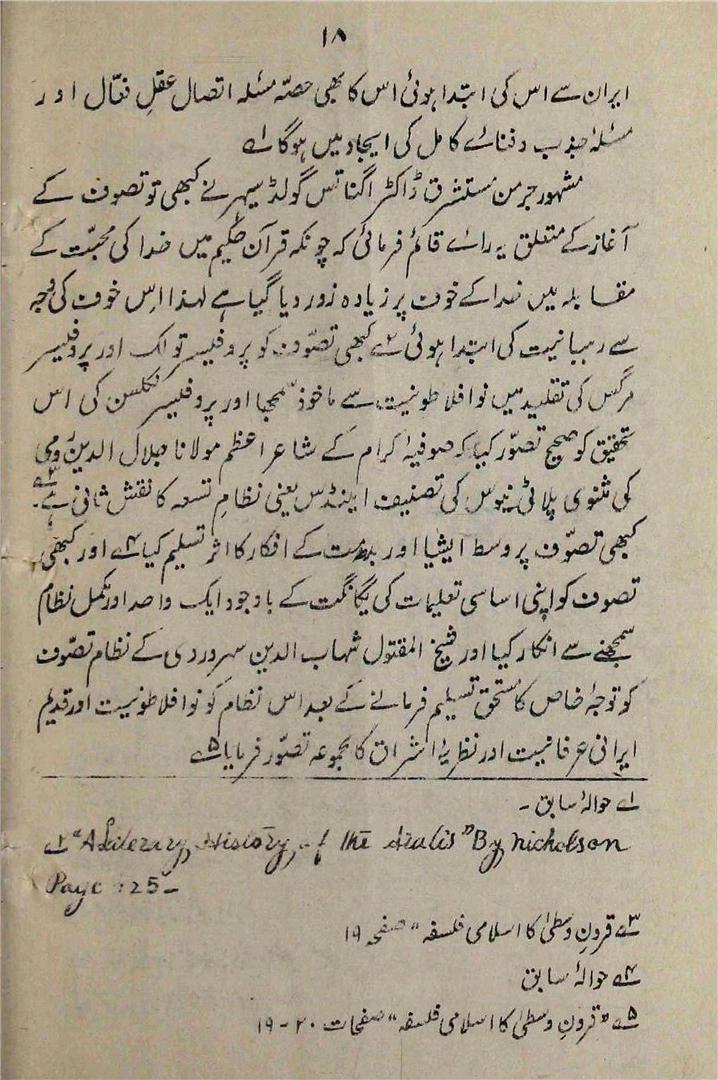 ۱۸
ایران سے اس کی ابتدا ہوئی اس کا بھی حصّہ مسئلہ اتصال عقلِ فعّال اور
مسئلۂ جذب و فنائے کامل کی ایجاد میں ہوگا ۱؎
مشہور جرمن مستشرق ڈاکٹر اگناتس گولڈ سیہر نے کبھی تو تصوف کے
آغاز کے متعلق یہ رائے قائم فرمائی کہ چونکہ قرآن حکیم میں خدا کی محبّت کے
مقابلہ میں خدا کے خوف پر زیادہ زور دیا گیا ہے لہٰذا اس خوف کی وجہ
سے رہبانیت کی ابتدا ہوئی ۲؎ کبھی تصوّف کو پروفیسر تولک اور پروفیسر
مرکس کی تقلید میں نوافلاطونیت سے ماخوذ سمجھا اور پروفیسر نکلسن کی اس
تحقیق کو صحیح تصوّر کیا کہ صوفیۂ کرام کے شاعر اعظم مولانا جلال الدین رومی
کی مثنوی پلاٹی نیوس کی تصنیف اینڈس یعنی نظامِ تسعہ کا نقش ثانی ہے ۳؎۔
کبھی تصوّف پر وسط ایشیا اور بدھ مت کے افکار کا اثر تسلیم کیا ۴؎ اور کبھی
تصوف کو اپنی اساسی تعلیمات کی یگانگت کے باوجود ایک واحد اور مکمل نظام
سمجھنے سے انکار کیا اور شیخ المقتول شہاب الدین سہروردی کے نظام تصوّف
کو توجۂ خاص کا مستحق تسلیم فرمانے کے بعد اس نظام کو نوافلاطونیت اور قدیم
ایرانی عرفانیت اور نظریۂ اشراق کا مجموعہ تصوّر فرمایا ۵؎
۱؎ حوالۂ سابق ۔
۲؎ "A Literary History of the Arabs" By Nicholson
Page 225 -
۳؎ قرونِ وسطیٰ کا اسلامی فلسفہ" صفحہ ۱۹
۴؎ حوالۂ سابق
۵؎ "قرونِ وسطیٰ کا اسلامی فلسفہ" صفحات ۲۰ - ۱۹